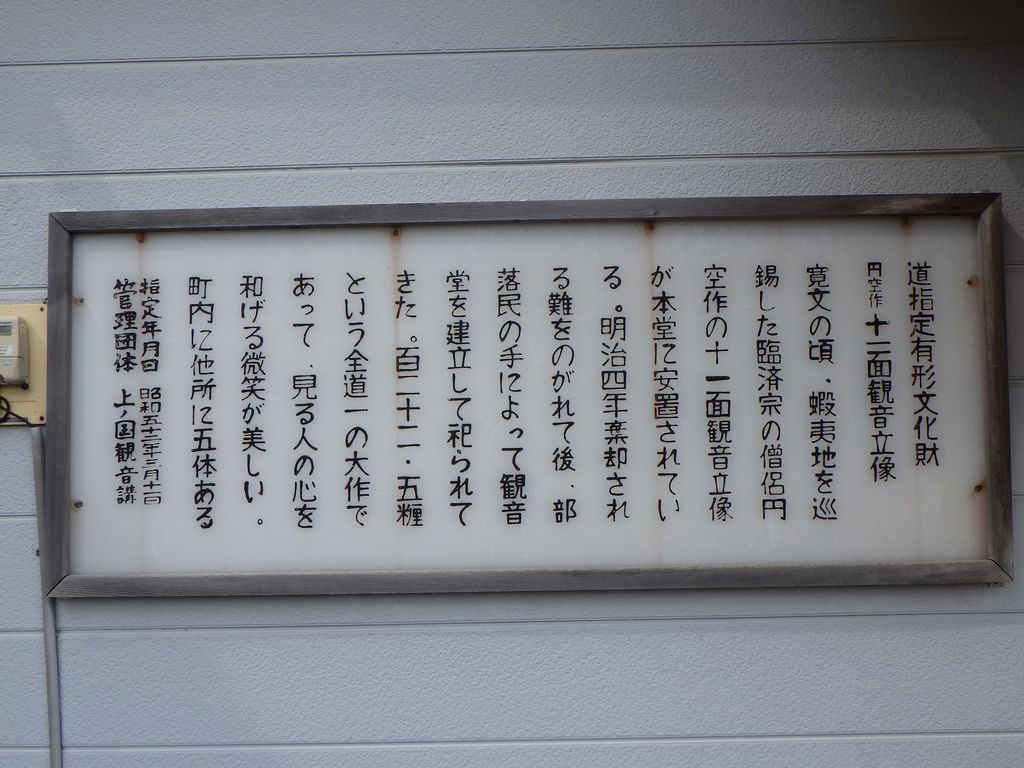 道指定有形文化財
円空作 十一面観音立像
寛文の頃・蝦夷地を巡
錫した臨済宗の僧侶円
空作の十一面観音立像
が本堂に安置されてい
る。明治四年棄却され
る難をのがれて後、部
落民の手によって観音
堂を建立して祀られて
きた。百二十二・五糎
という全道一の大作で
あって、見る人の心を
和げる微笑が美しい。
町内に他所に五体ある
指定年月日 昭和五二年三月十一日
管理団体 上ノ国観音講